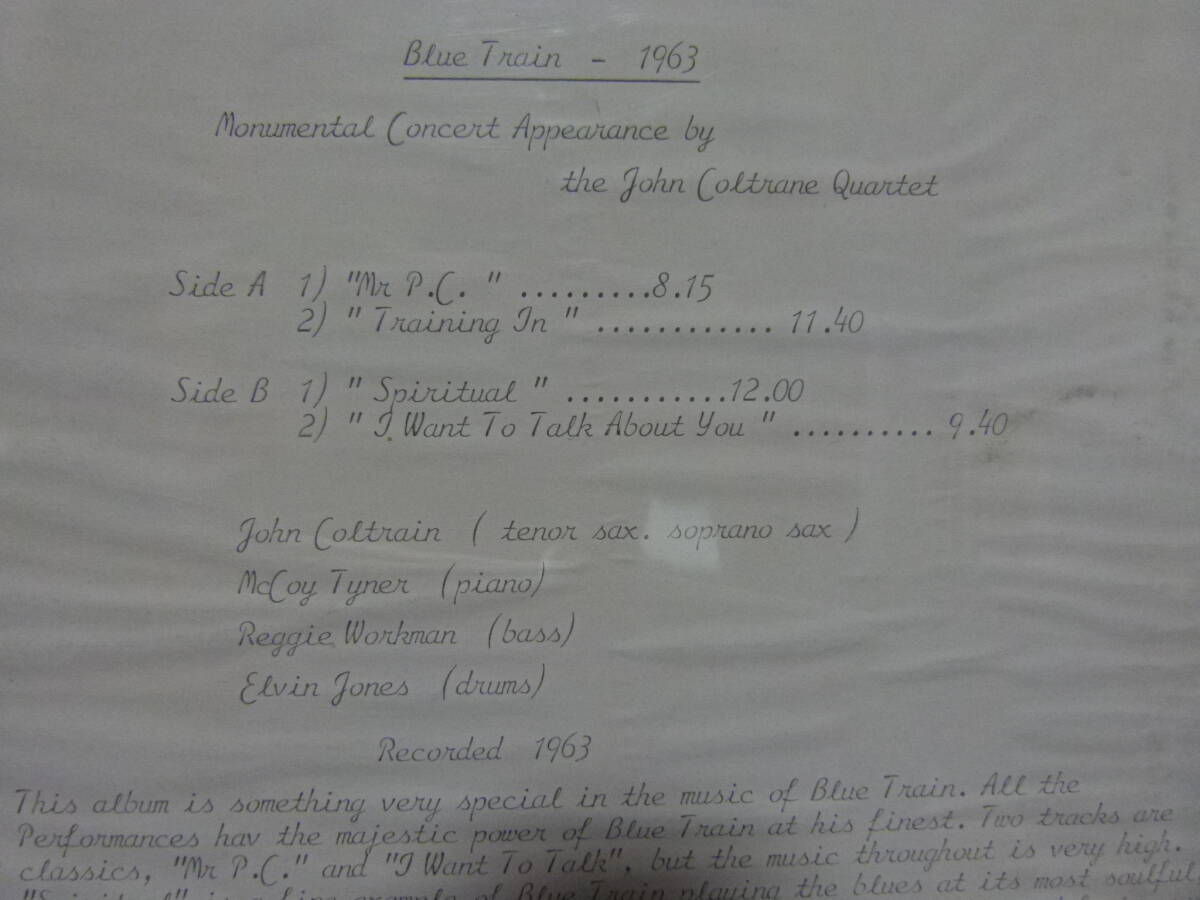 Blue Train - 1963
Monumental Concert Appearance by
the John Coltrane Quartet
Side A 1) "Mr P.C. " .........8.15
2) " Training In " ............ 11.40
Side B 1) " Spiritual " ...........12.00
2) " I Want To Talk About You " .......... 9.40
John Coltrain ( tenor sax. soprano sax )
McCoy Tyner (piano)
Reggie Workman (bass)
Elvin Jones (drums)
Recorded 1963
This album is something very special in the music of Blue Train. All the
Performances hav the majestic power of Blue Train at his finest. Two tracks are
classics, "Mr P.C." and "I Want To Talk", but the music throughout is very high.
"Spiritual" is a fine example of Blue Train playing the blues at its most soulful,